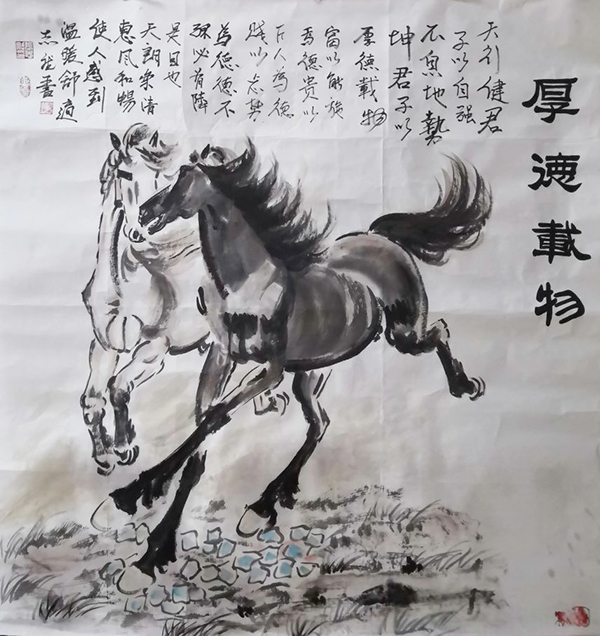 厚德載物
天行健君
子以自强
不息地勢
坤君子以
厚德載物
富以能施
為德貴以
下人為德
賤以忘
為德德不
孤必有隣
是日也
天朗氣清
惠風和暢
使人感到
温暖舒適